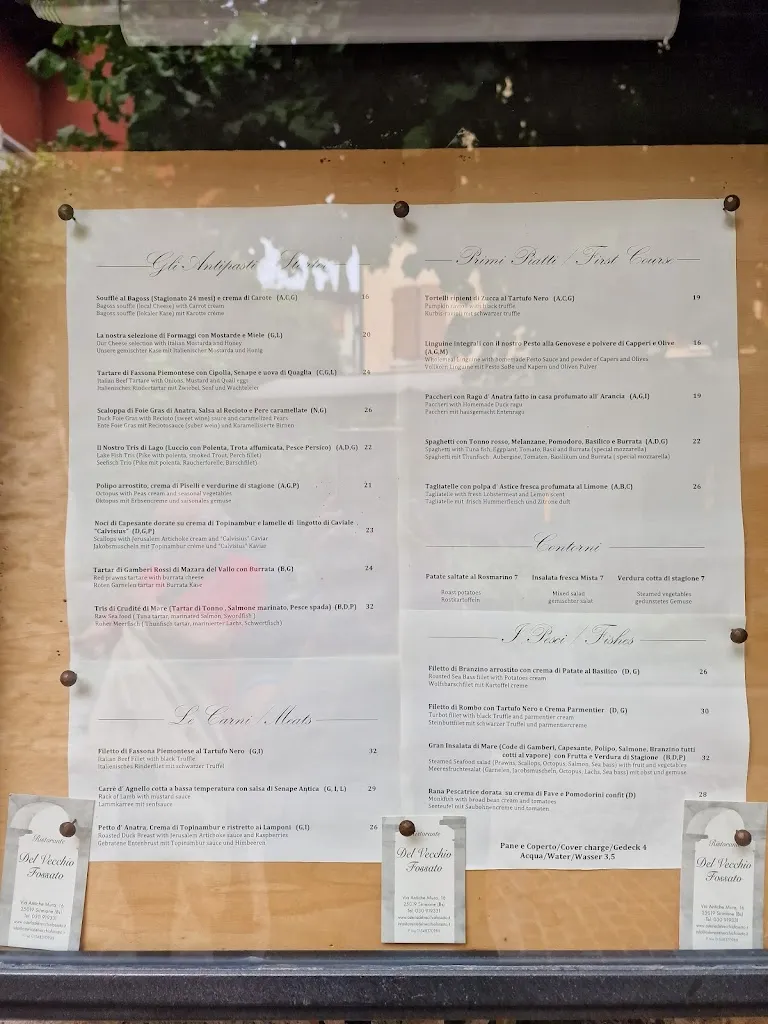 Gli Antipasti
Soufflè al Bagoss (Stagionato 24 mesi) e crema di Carote (A,C,G) 16
Bagoss souffle (local Cheese) with Carrot cream
Bagoss souffle (lokaler Käse) mit Karotte crème
La nostra selezione di Formaggi con Mostarde e Miele (G,L) 20
Our Cheese selection with Italian Mostarda and Honey
Unsere gemischter Käse mit Italienischer Mostarda und Honig
Tartare di Fassona Piemontese con Cipolla, Senape e uova di Quaglia (C,G,L) 24
Italian Beef Tartare with Onions, Mustard and Quail eggs
Italienisches Rindertartar mit Zwiebel, Senf und Wachteleier
Scaloppa di Foie Gras di Anatra, Salsa al Recioto e Pere caramellate (N,G) 26
Duck Foie Gras with Recioto (sweet wine) sauce and caramelized Pears
Ente Foie Gras mit Reciotosauce (süßer wein) und Karamellisierte Birnen
Il Nostro Tris di Lago (Luccio con Polenta, Trota affumicata, Pesce Persico) (A,D,G) 22
Lake Fish Tris (Pike with polenta, smoked Trout, Perch fillet)
Seefisch Tris (Pike mit polenta, Räucherforelle, Barschfilet)
Polipo arrostito, crema di Piselli e verdurine di stagione (A,G,P) 21
Octopus with Peas cream and seasonal vegetables
Oktopus mit Erbsencreme und saisonales gemüse
Noci di Capesante dorate su crema di Topinambur e lamelle di lingotto di Caviale
"Calvisius" (D,G,P) 23
Scallops with Jerusalem Artichoke cream and "Calvisius" Caviar
Jakobsmuscheln mit Topinambur creme und "Calvisius" Kaviar
Tartar di Gamberi Rossi di Mazara del Vallo con Burrata (B,G) 24
Red prawns tartare with burrata cheese
Roten Garnelen tartar mit Burrata Käse
Tris di Crudité di Mare (Tartar di Tonno , Salmone marinato, Pesce spada) (B,D,P) 32
Raw Sea food ( Tuna tartar, marinated Salmon, Swordfish )
Roher Meerfisch ( Thunfisch tartar, marinierter Lachs, Schwertfisch)
Le Carni / Meats
Filetto di Fassona Piemontese al Tartufo Nero (G,I) 32
Italian Beef Fillet with black Truffle
Italienisches Rinderfilet mit schwarzer Trüffel
Carrè d' Agnello cotta a bassa temperatura con salsa di Senape Antica (G, I, L) 29
Rack of Lamb with mustard sauce
Lammkarree mit senfsauce
Petto d' Anatra, Crema di Topinambur e ristretto ai Lamponi (G,I) 26
Roasted Duck Breast with Jerusalem Artichoke sauce and Raspberries
Gebratene Entenbrust mit Topinambur sauce und Himbeeren
Primi Piatti / First Course
Tortelli ripieni di Zucca al Tartufo Nero (A,C,G) 19
Pumpkin ravioli with black truffle
Kürbis ravioli mit schwarzer truffle
Linguine integrali con il nostro Pesto alla Genovese e polvere di Capperi e Olive 16
(A,G,M)
Wholemeal Linguine with homemade Pesto Sauce and powder of Capers and Olives
Vollkorn Linguine mit Pesto Soße und Kapern und Oliven Pulver
Paccheri con Ragù d' Anatra fatto in casa profumato all' Arancia (A,G,I) 19
Paccheri with Homemade Duck ragù
Paccheri mit hausgemacht Entenragù
Spaghetti con Tonno rosso, Melanzane, Pomodoro, Basilico e Burrata (A,D,G) 22
Spaghetti with Tuna fish, Eggplant, Tomato, Basil and Burrata (special mozzarella)
Spaghetti mit Thunfisch Aubergine, Tomaten, Basilikum und Burrata ( special mozzarella)
Tagliatelle con polpa d' Astice fresca profumata al Limone (A,B,C) 26
Tagliatelle with fresh Lobstermeat and Lemon scent
Tagliatelle mit frisch Hummerfleisch und Zitrone duft
Contorni
Patate saltate al Rosmarino 7 Insalata fresca Mista 7 Verdura cotta di stagione 7
Roast potatoes Mixed salad Steamed vegetables
Rostkartoffeln gemischter salat gedünstetes Gemüse
I Pesci / Fishes
Filetto di Branzino arrostito con crema di Patate al Basilico (D, G) 26
Roasted Sea Bass fillet with Potatoes cream
Wolfsbarschfilet mit Kartoffel creme
Filetto di Rombo con Tartufo Nero e Crema Parmentier (D, G) 30
Turbot fillet with black Truffle and parmentier cream
Steinbuttfilet mit schwarzer Trüffel und parmentiercreme
Gran Insalata di Mare (Code di Gamberi, Capesante, Polipo, Salmone, Branzino tutti
cotti al vapore) con Frutta e Verdura di Stagione (B,D,P) 32
Steamed Seafood salad (Prawns, Scallops, Octopus, Salmon, Sea bass) with fruit and vegetables
Meeresfrüchtesalat (Garnelen, Jacobsmuscheln, Octopus, Lachs, Sea bass) mit obst und gemuse
Rana Pescatrice dorata su crema di Fave e Pomodorini confit (D) 28
Monkfish with broad bean cream and tomatoes
Seeteufel mit Saubohnencreme und tomaten
Pane e Coperto/Cover charge/Gedeck 4
Acqua/Water/Wasser 3,5
Ristorante
Del Vecchio
Fossato
Via Antiche Mura, 16
25019 Sirmione (Bs)
Tel. 030 919331
Ristorante
Del Vecchio
Fossato
Via Antiche Mura, 16
25019 Sirmione (Bs)
Tel. 030 919331
Ristorante
Del Vecchio
Fossato
Via Antiche Mura, 16
25019 Sirmione (Bs)
Tel. 030 919331